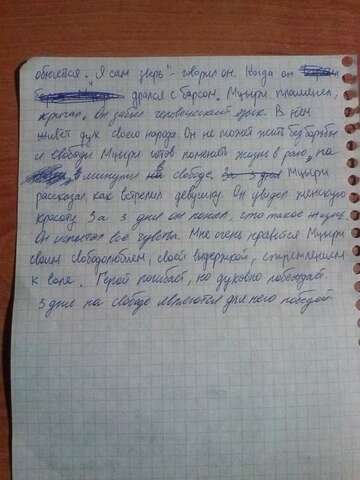 обнимется. "Я сам зверь" - говорил он. Когда он
дрался с барсом. Мцыри пламенел,
кричал, он забыл человеческий язык. В нём
живёт дух своего народа. Он не может жить без борьбы
и свободы Мцыри готов поменять жизнь в раю, на
3 минуты на свободе. За 3 дня Мцыри
рассказал как встретил девушку. Он увидел женскую
красоту За 3 дня он понял, что такое жизнь.
Он испытал все чувства. Мне очень нравится Мцыри
своим свободолюбием, своей выдержкой, стремлением
к воле. Герой погибает, но духовно побеждает.
3 дня на свободе являются для него победой.